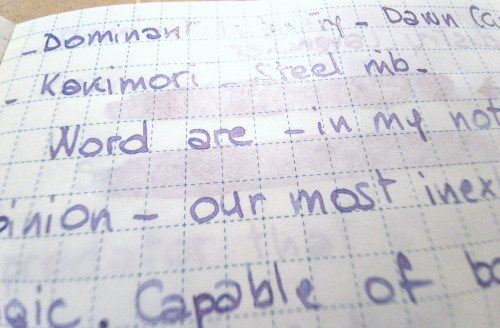 - Dominant Industry - Dawn (c
- Kakimori Steel nib -
Word are - in my not
pinion - our most inex
gic. Capable of b